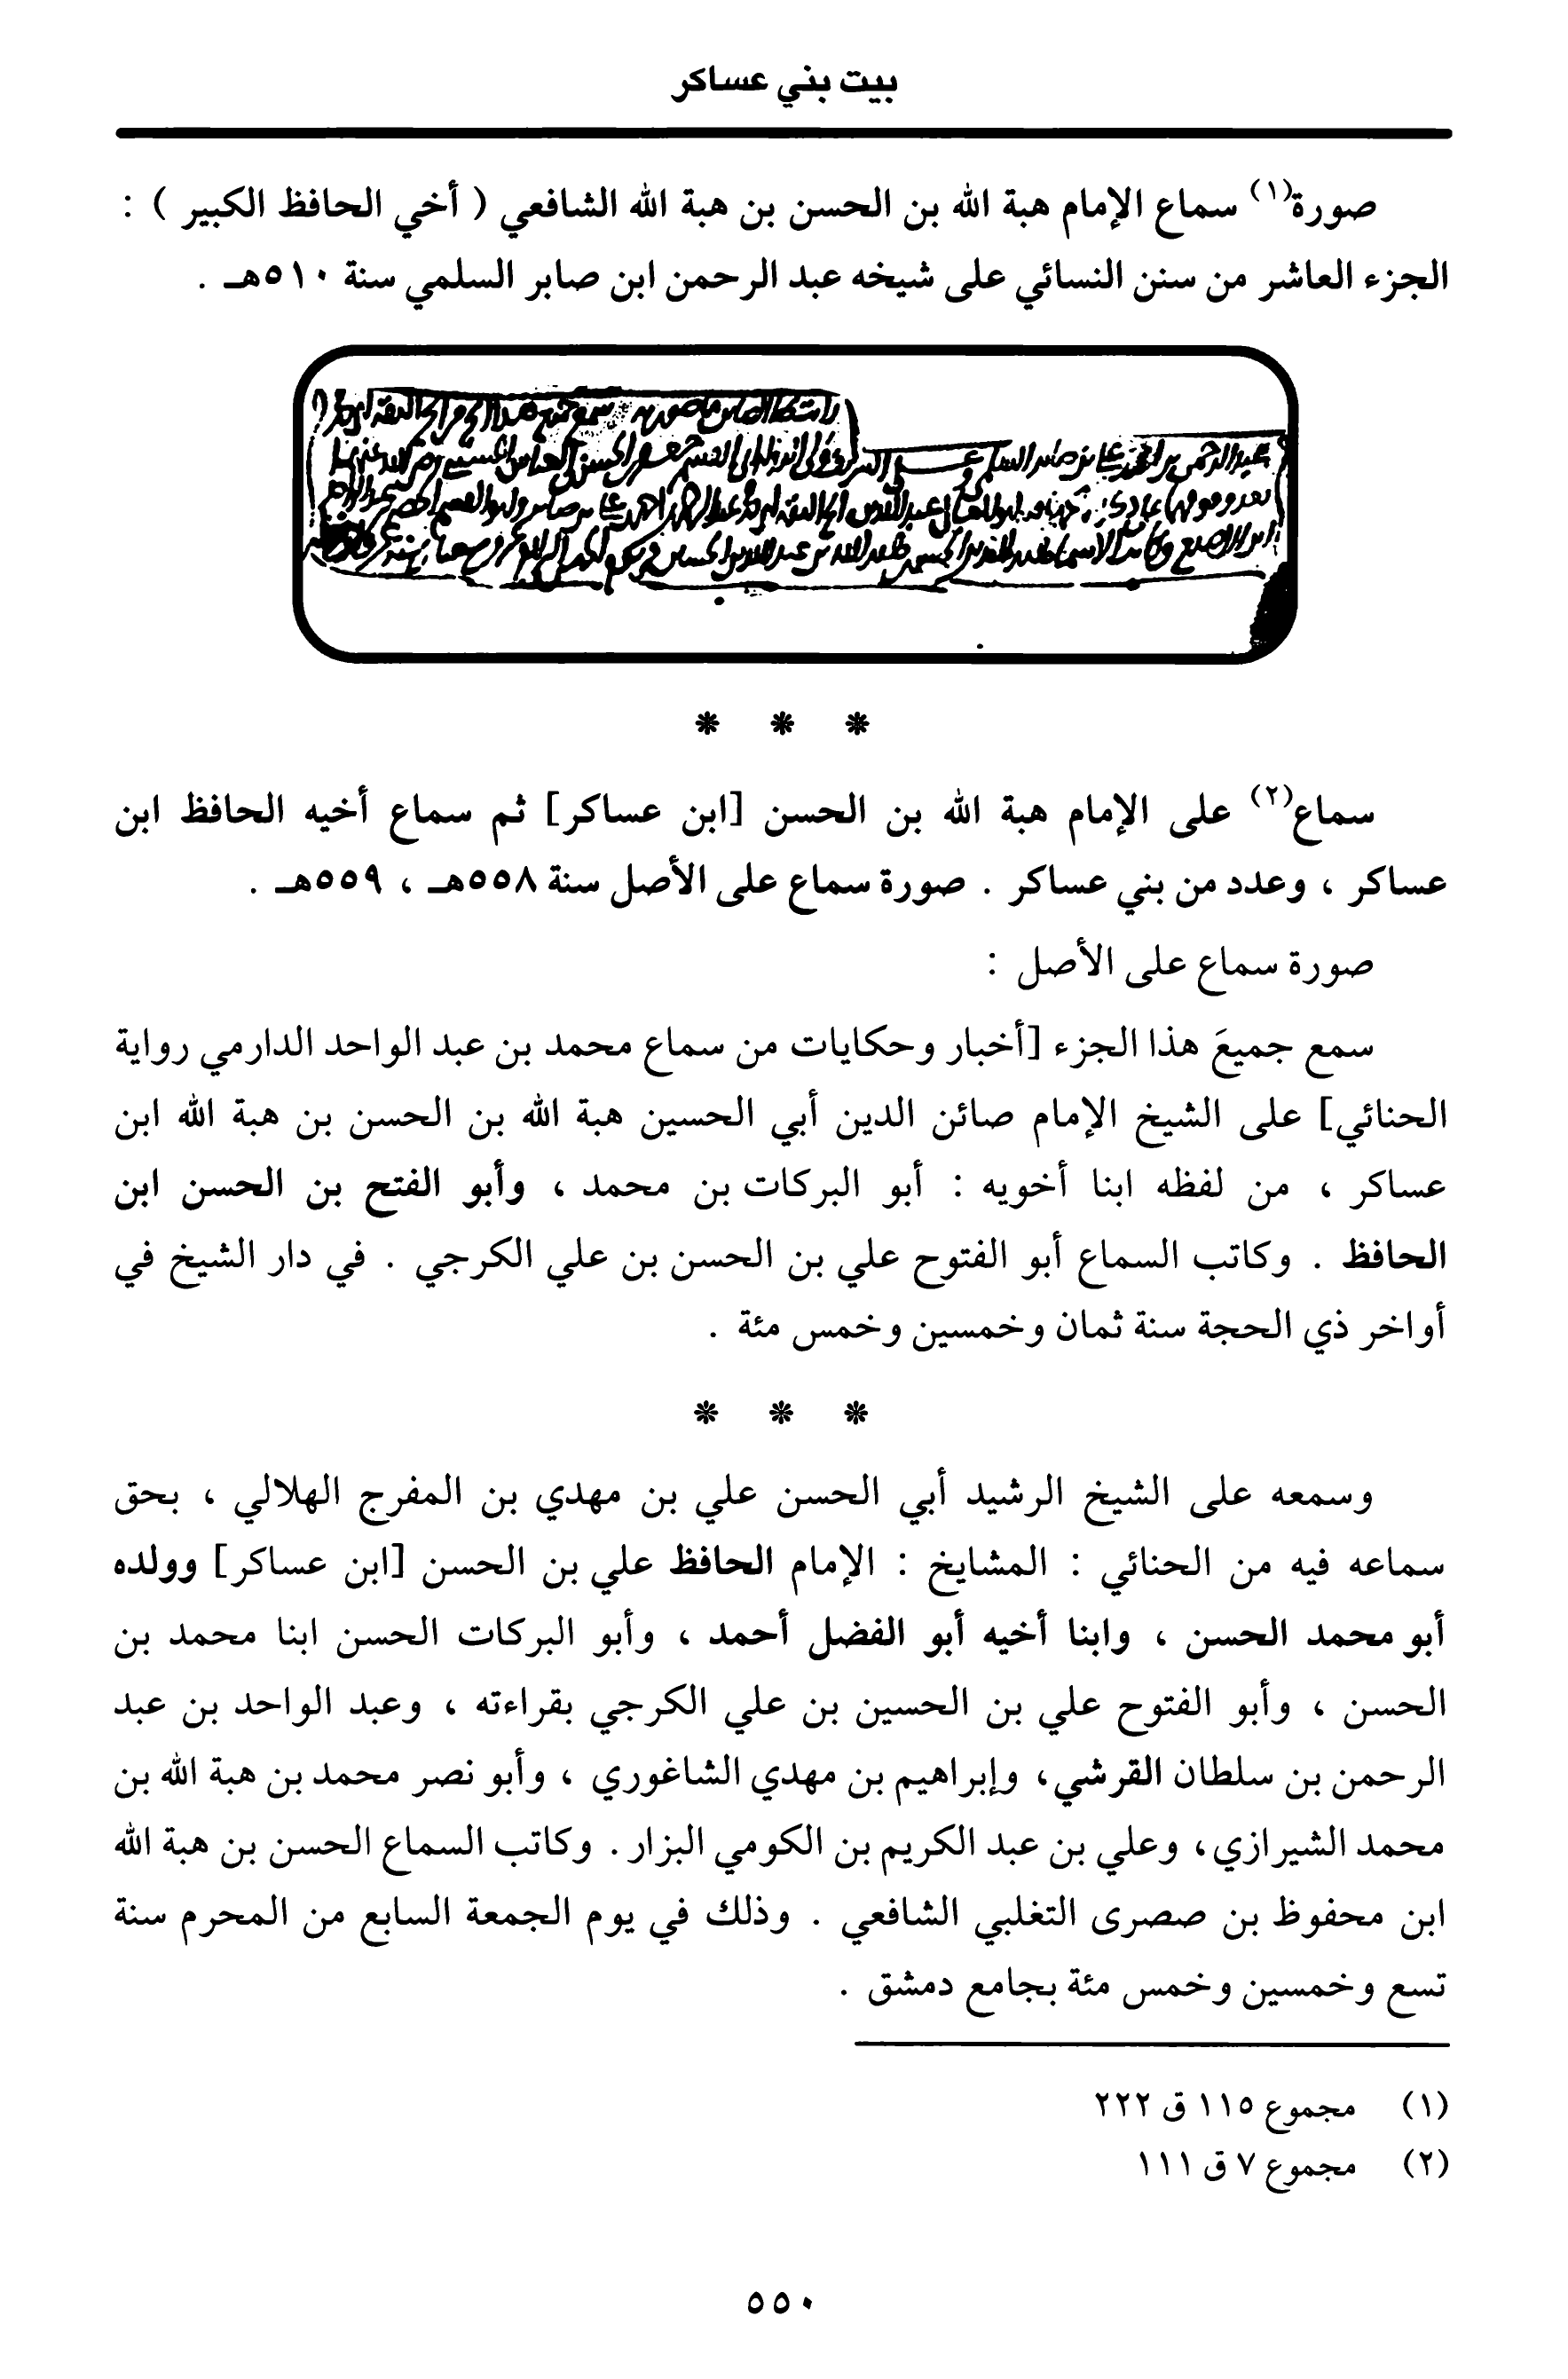 بيت بني عساكر
صورة(١) سماع الإمام هبة الله بن الحسن بن هبة الله الشافعي ( أخي الحافظ الكبير ) :
الجزء العاشر من سنن النسائي على شيخه عبد الرحمن ابن صابر السلمي سنة ٥١٠هـ .
* * *
سماع(٢) على الإمام هبة الله بن الحسن [ابن عساكر] ثم سماع أخيه الحافظ ابن
عساكر ، وعدد من بني عساكر . صورة سماع على الأصل سنة ٥٥٨هـ ، ٥٥٩هـ .
صورة سماع على الأصل :
سمع جميعَ هذا الجزء [أخبار وحكايات من سماع محمد بن عبد الواحد الدارمي رواية
الحنائي] على الشيخ الإمام صائن الدين أبي الحسين هبة الله بن الحسن بن هبة الله ابن
عساكر ، من لفظه ابنا أخويه : أبو البركات بن محمد ، وأبو الفتح بن الحسن ابن
الحافظ . وكاتب السماع أبو الفتوح علي بن الحسن بن علي الكرجي . في دار الشيخ في
أواخر ذي الحجة سنة ثمان وخمسين وخمس مئة .
* * *
وسمعه على الشيخ الرشيد أبي الحسن علي بن مهدي بن المفرج الهلالي ، بحق
سماعه فيه من الحنائي : المشايخ : الإمام الحافظ علي بن الحسن [ابن عساكر] وولده
أبو محمد الحسن ، وابنا أخيه أبو الفضل أحمد ، وأبو البركات الحسن ابنا محمد بن
الحسن ، وأبو الفتوح علي بن الحسين بن علي الكرجي بقراءته ، وعبد الواحد بن عبد
الرحمن بن سلطان القرشي، وإبراهيم بن مهدي الشاغوري ، وأبو نصر محمد بن هبة الله بن
محمد الشيرازي، وعلي بن عبد الكريم بن الكومي البزار . وكاتب السماع الحسن بن هبة الله
ابن محفوظ بن صصرى التغلبي الشافعي . وذلك في يوم الجمعة السابع من المحرم سنة
تسع وخمسين وخمس مئة بجامع دمشق .
(١) مجموع ١١٥ ق ٢٢٢
(٢) مجموع ٧ ق ١١١
٥٥٠